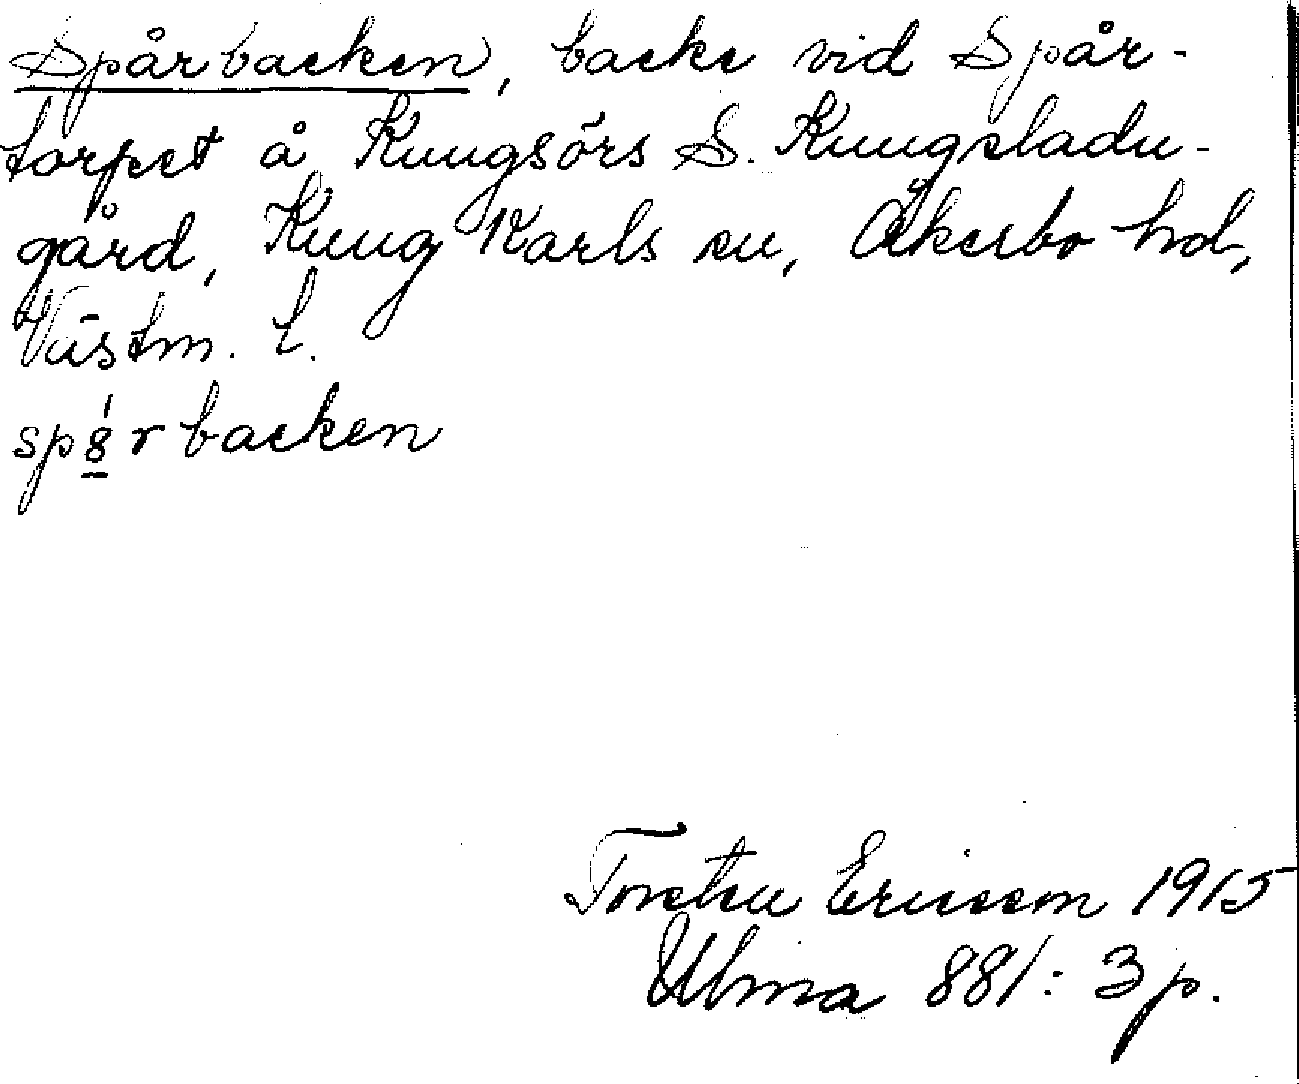 Spårbacken, backe vid Spår-
torpet å Kungsörs S. Kungsladu-
gård, Kung Karls sn, Åkerbo hd,
Västm. l.
sp8́rbacken
Torsten Ericsson 1915
Ulma 881: 3 p.